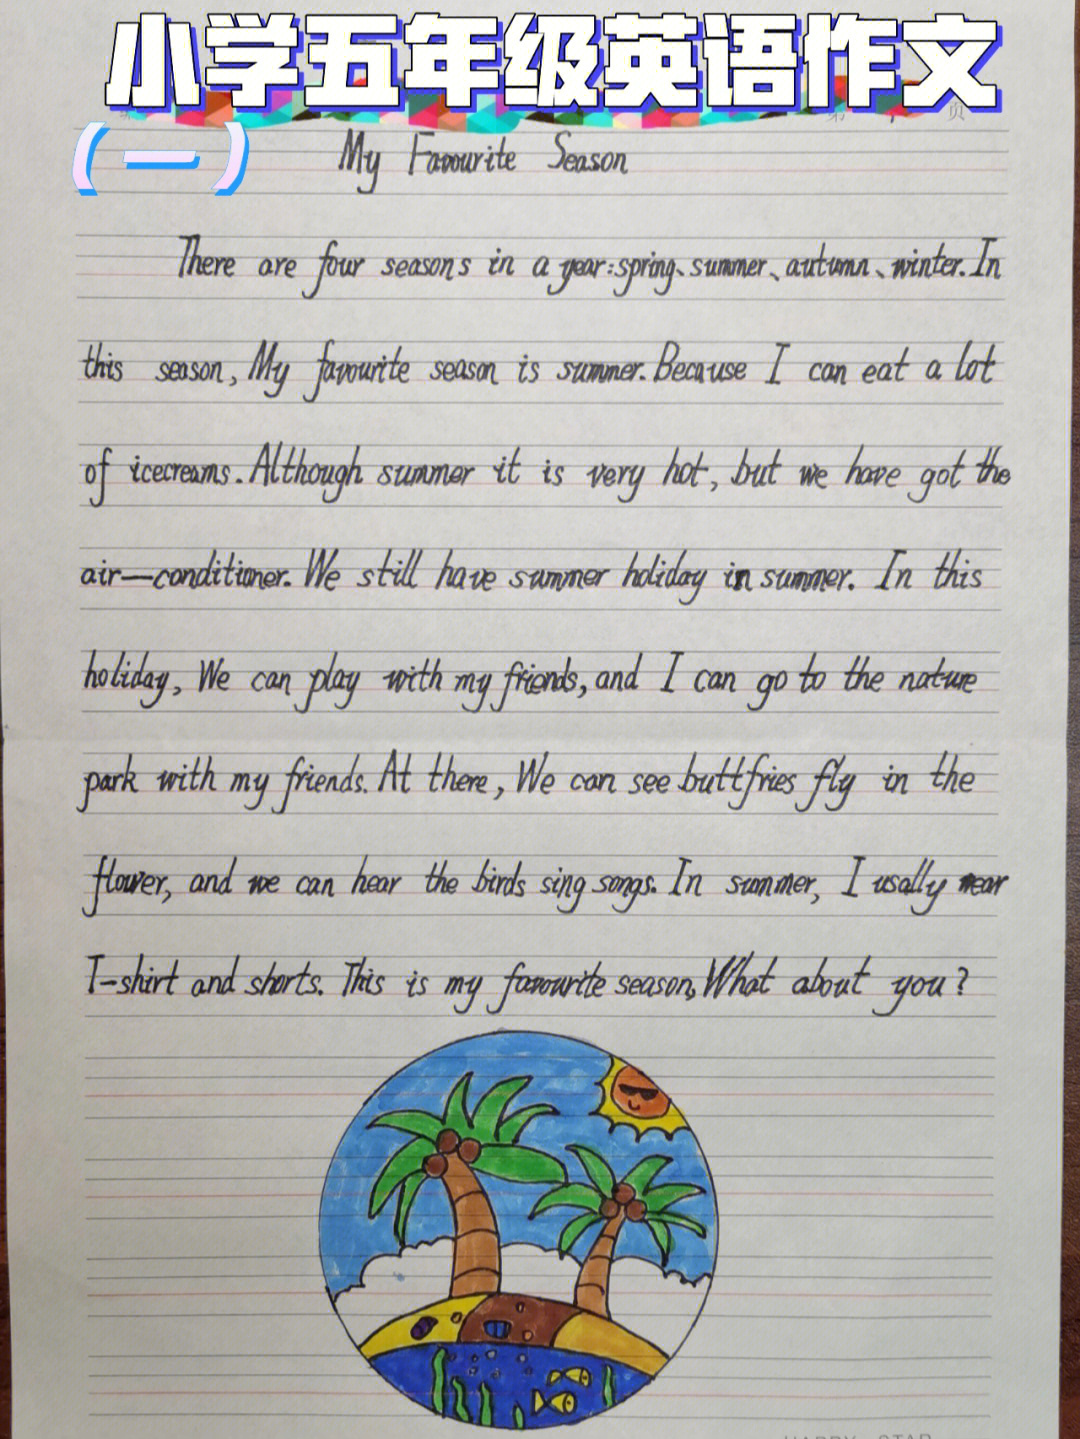 小学五年级英语作文
第 页
（一）
My Favourite Season
There are four seasons in a year:spring、summer、autumn、winter. In
this season, My favourite season is summer. Because I can eat a lot
of icecreams. Although summer it is very hot, but we have got the
air—conditioner. We still have summer holiday in summer. In this
holiday, We can play with my friends, and I can go to the nature
park with my friends. At there, We can see buttfries fly in the
flower, and we can hear the birds sing songs. In summer, I usally wear
T-shirt and shorts. This is my favourite season, What about you?
HAPPY STAR